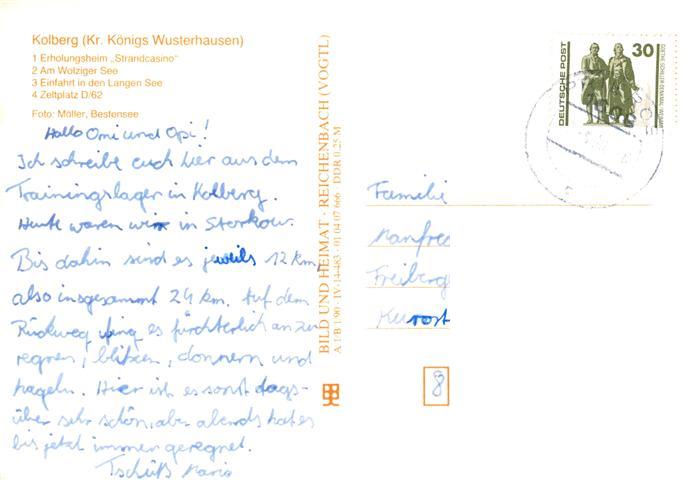 Kolberg (Kr. Königs Wusterhausen)
1 Erholungsheim „Strandcasino"
2 Am Wolziger See
3 Einfahrt in den Langen See
4 Zeltplatz D/62
Foto: Möller, Bestensee
Hallo Omi und Opi!
Ich schreibe euch hier aus dem
Trainingslager in Kolberg.
Heute waren wir in Storkow.
Bis dahin sind es jeweils 12 km,
also insgesamt 24 km. Auf dem
Rückweg fing es fürchterlich an zu
regnen, blitzen, donnern und
hageln. Hier ist es sonst tags-
über sehr schön, aber abends hat es
bis jetzt immer geregnet.
Tschüß Mario
BILD UND HEIMAT · REICHENBACH (VOGTL)
A 1/B 1/90 · IV-14-483 · 01 04 07 666 · DDR 0,25 M
DEUTSCHE POST
30
GOETHE-SCHILLER-DENKMAL, WEIMAR
Familie
Manfred
Freiberg
Kurort
8